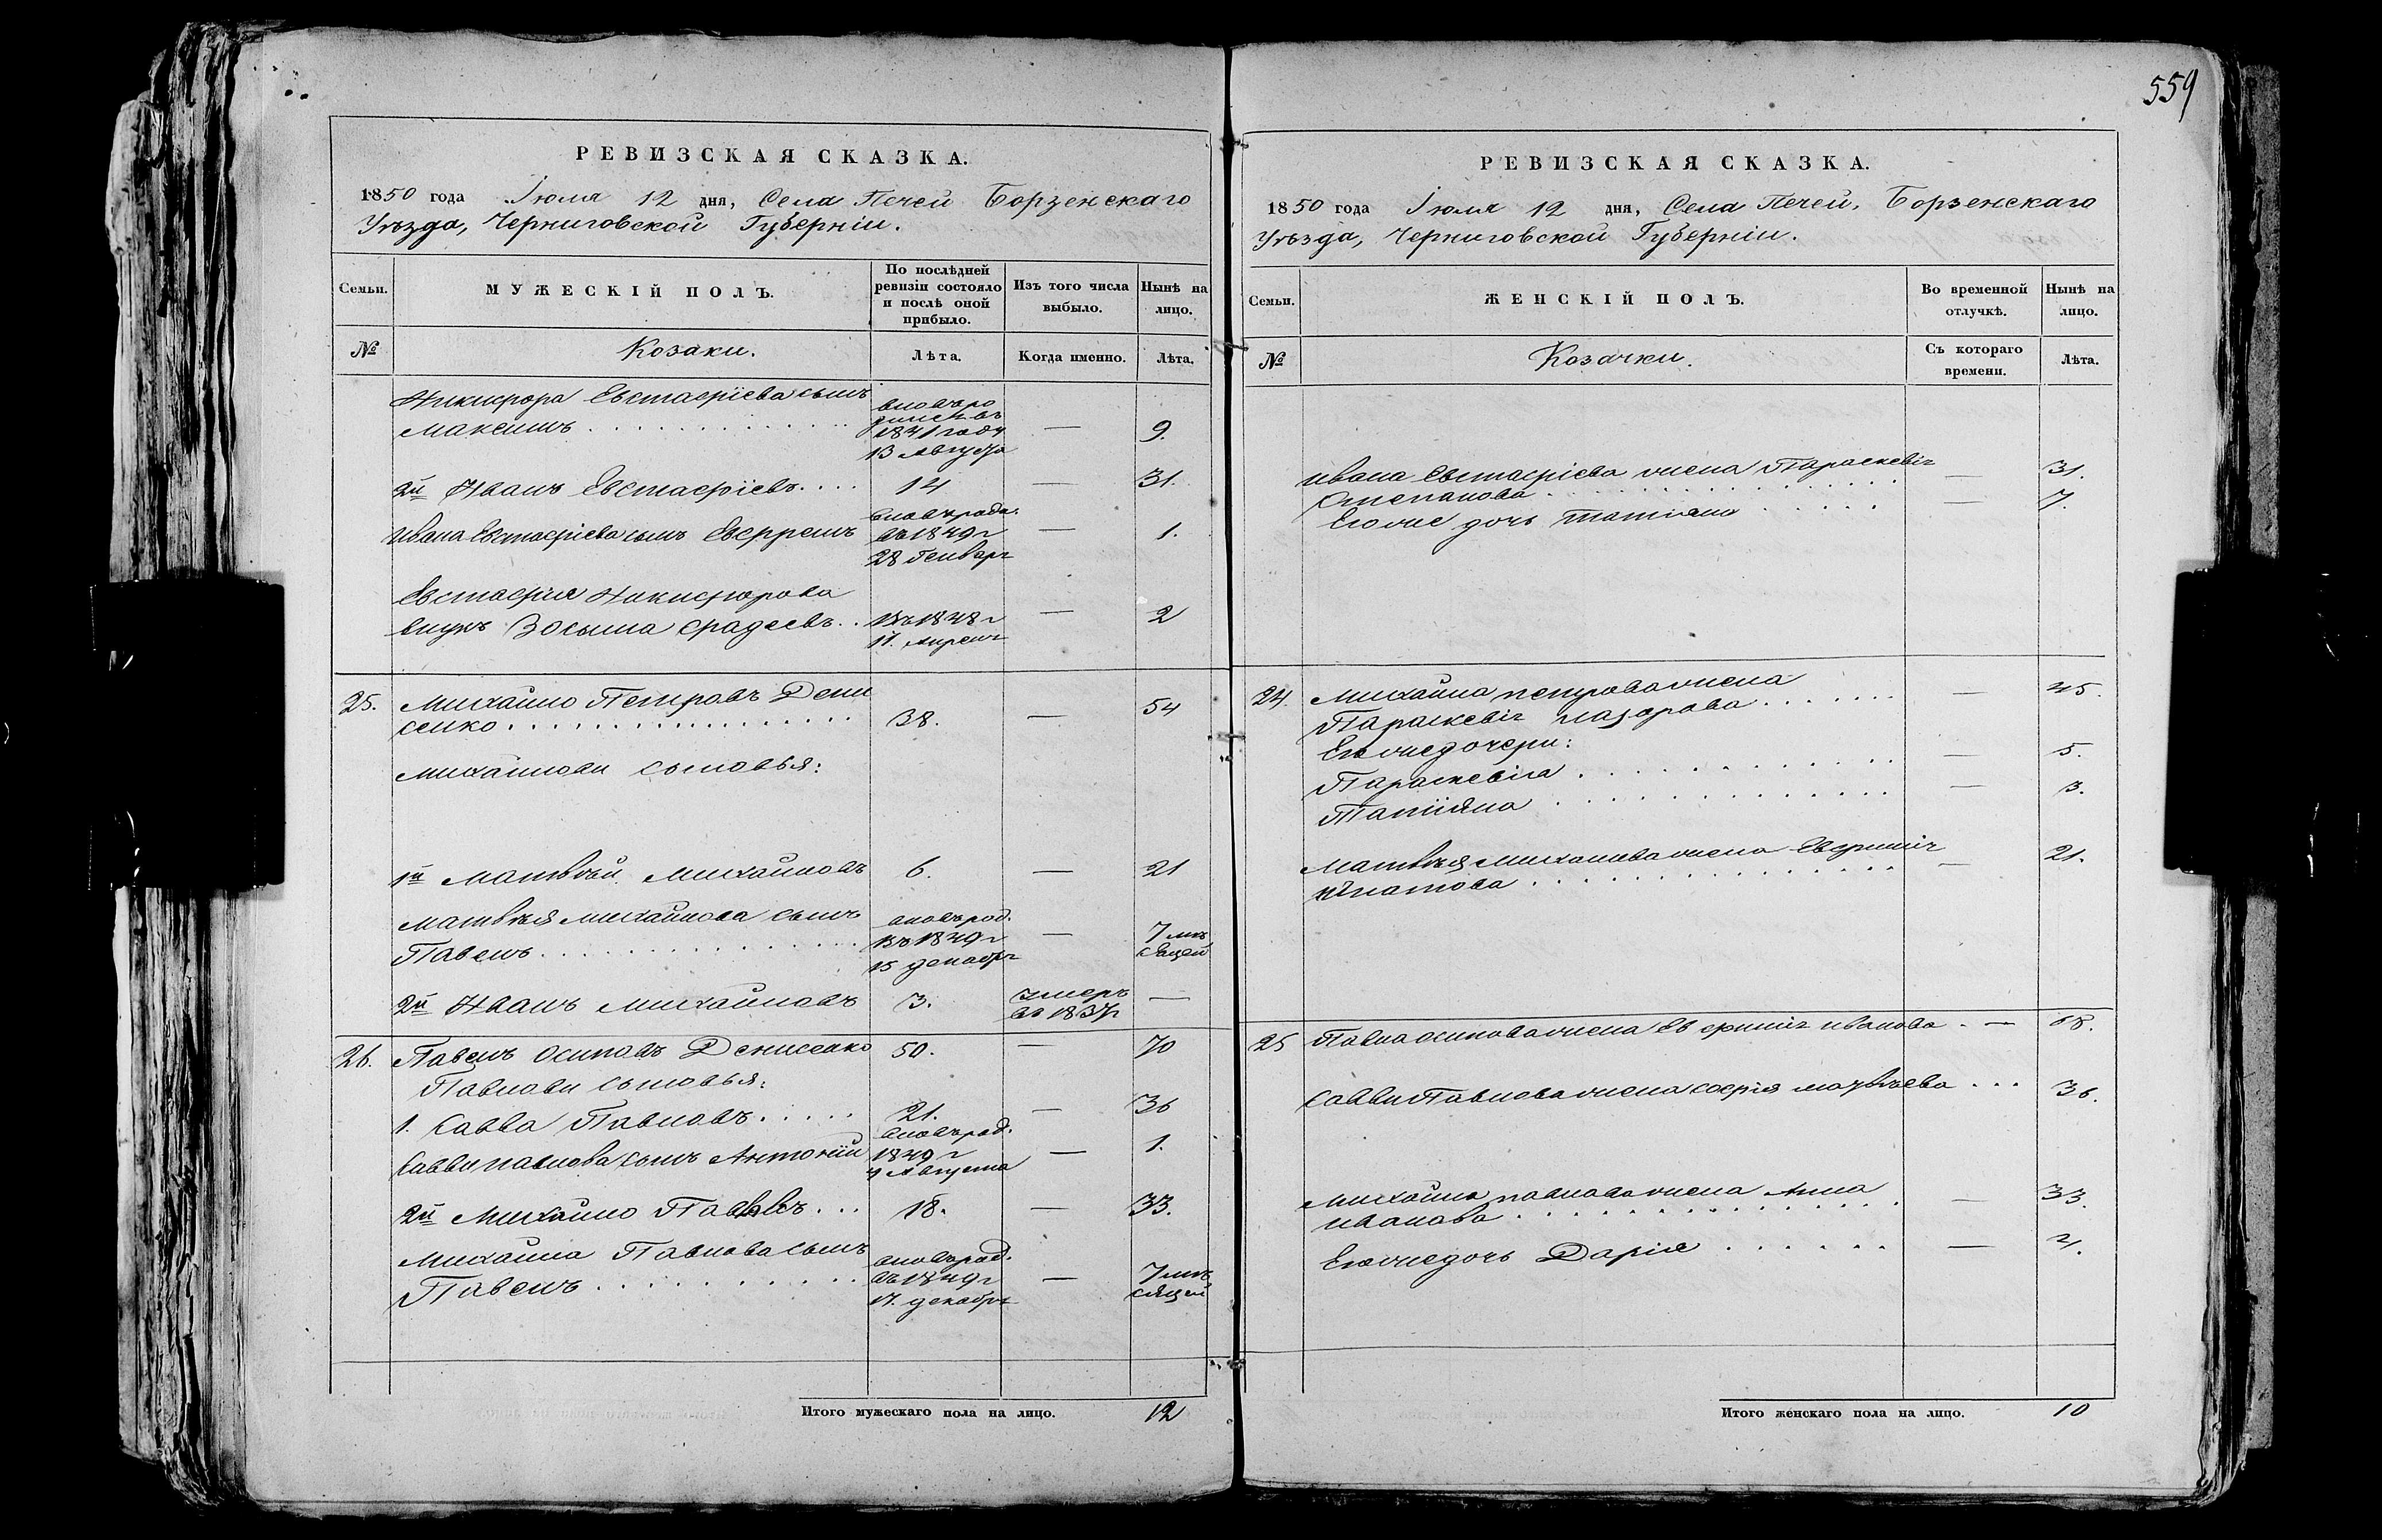 559
РЕВИЗСКАЯ СКАЗКА.
1850 года Іюля 12 дня, Села Печей Борзенскаго
Уѣзда, Черниговской Губерніи.
Семьи.
МУЖЕСКІЙ ПОЛЪ.
По послѣдней
ревизіи состояло
и послѣ оной
прибыло.
Изъ того числа
выбыло.
Нынѣ на
лицо.
№
Козаки.
Лѣта.
Когда именно.
Лѣта.
Никифора Евстафіева сынъ
Максимъ
вновь ро
1841 году
13 Августа
—
9.
2й Иванъ Евстафіевъ
14
—
31.
Ивана Евстафіева сынъ Ефремъ
въ 1849 г
28 Генваря
—
1.
Евстафія Никифорова
внукъ Зосима Фадеевъ
въ 1848 г
11. Апреля
—
2
25.
Михайло Петровъ Дени
сенко
38.
—
54
Михайлови сыновья:
1й Матвѣй Михайловъ
6.
—
21
Матвѣя Михайлова сынъ
Павелъ
вновь род.
въ 1849 г
15 декабря
—
7 мѣ
сяцей
2й Иванъ Михайловъ
3.
умеръ
въ 1837 г
—
26.
Павелъ Осиповъ Денисенко
50.
—
70
Павлови сыновья:
1. Савва Павловъ
21.
—
36
Савви Павлова сынъ Антоній
вновь род.
1849 г
4 Августа
—
1.
2й Михайло Павловъ
18.
—
33.
Михайла Павлова сынъ
Павелъ
вновь род.
въ 1849 г
17. декабря
—
7 мѣ
сяцей
Итого мужескаго пола на лицо. 12
РЕВИЗСКАЯ СКАЗКА.
1850 года Іюля 12 дня, Села Печей, Борзенскаго
Уѣзда, Черниговской Губерніи.
Семьи.
ЖЕНСКІЙ ПОЛЪ.
Во временной
отлучкѣ.
Нынѣ на
лицо.
№
Козачки.
Съ котораго
времени.
Лѣта.
Ивана Евстафіева жена Параскевія
Степанова
—
31.
Его же дочь Татіяна
—
7.
24.
Михайла Петрова жена
Параскевія Назарова
—
45.
Его же дочери:
Параскевія
—
5.
Татіяна
—
3.
Матвѣя Михайлова жена Евфимія
Игнатова
—
21.
25
Павла Осипова жена Евфимія Иванова
—
68.
Савви Павлова жена Софія Матвѣева
36.
Михайла Павлова жена Анна
Иванова
—
33.
Его же дочь Дарія
—
4.
Итого женскаго пола на лицо. 10